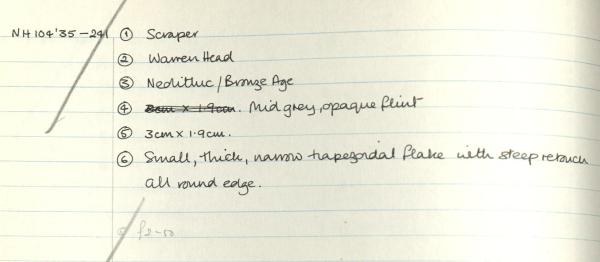 NH 104'35-241 ① Scraper
② Warren Head
③ Neolithic/Bronze Age
④ 3cm x 1.9cm. Mid grey, opaque flint
⑤ 3cm x 1.9cm.
⑥ Small, thick, narrow trapezoidal flake with steep retouch
all round edge.